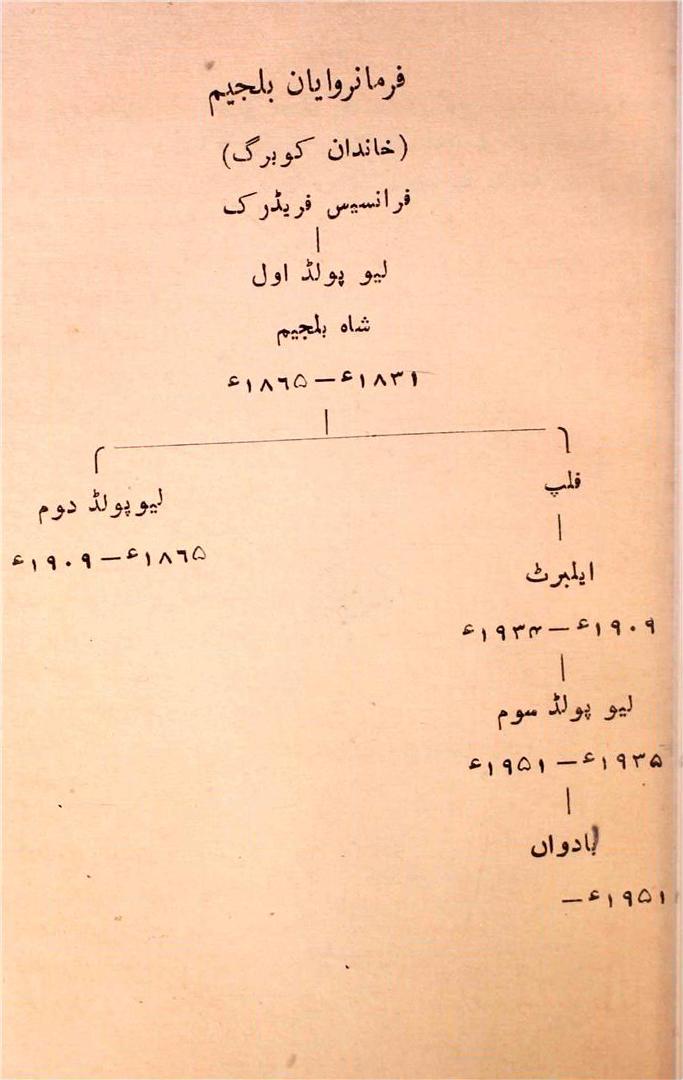 فرمانروایان بلجیم
(خاندان کوبرگ)
فرانسیس فریڈرک
لیو پولڈ اول
شاہ بلجیم
۱۸۳۱ء — ۱۸۶۵ء
فلپ
ایلبرٹ
۱۹۰۹ء — ۱۹۳۴ء
لیو پولڈ سوم
۱۹۳۵ء — ۱۹۵۱ء
بادواں
۱۹۵۱ء —
لیوپولڈ دوم
۱۸۶۵ء — ۱۹۰۹ء